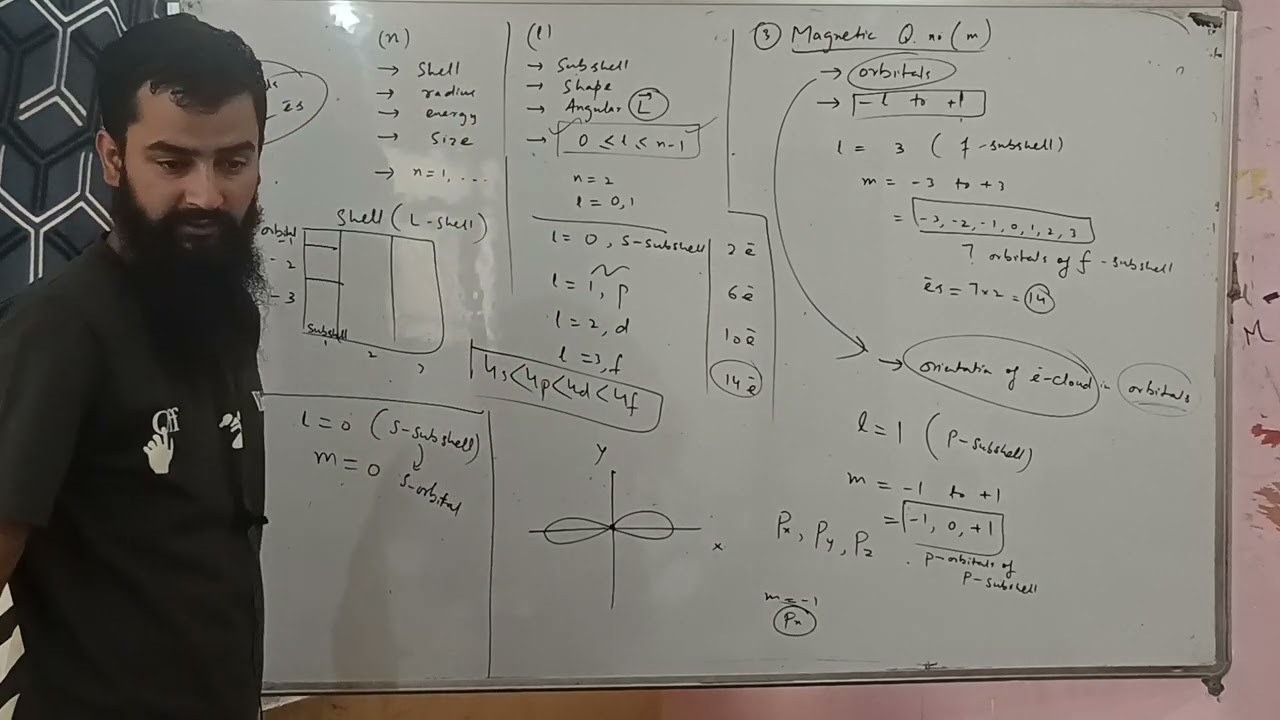 (n)
→ Shell
→ radius
→ energy
→ Size
→ n=1, ....
ēs
Shell (L-shell)
orbital
-1
-2
-3
Subshell
1
2
3
(l)
→ Subshell
→ Shape
→ Angular L⃗
→ 0 ≤ l ≤ n-1
n=2
l=0,1
l=0, S-subshell 2ē
l=1, p 6ē
l=2, d 10ē
l=3, f 14ē
4s<4p<4d<4f
l=0 (S-subshell)
m=0 s-orbital
y
x
③ Magnetic Q. no (m)
→ orbitals
→ -l to +l
l = 3 (f-subshell)
m = -3 to +3
= -3, -2, -1, 0, 1, 2, 3
7 orbitals of f-subshell
ēs = 7x2 = 14
→ orientation of ē-cloud in orbitals
l=1 (P-subshell)
m = -1 to +1
Px, Py, Pz = -1, 0, +1
p-orbitals of
P-subshell
m=-1
Px
M